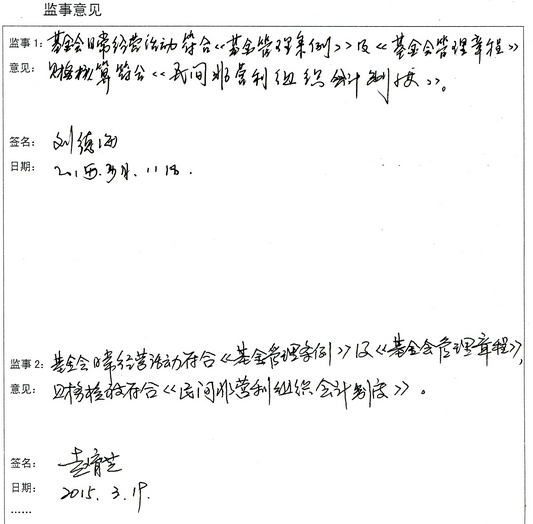 监事意见
监事 1: 基金会日常经营活动符合《基金管理条例》及《基金会管理章程》
意见: 财务核算符合《民间非营利组织会计制度》。
签名: 刘德海
日期: 2015年3月.11日.
监事 2: 基金会日常经营活动符合《基金管理条例》及《基金会管理章程》,
意见: 且核检收符合《民间非营利组织会计制度》。
签名:
日期: 2015. 3. 19.
......